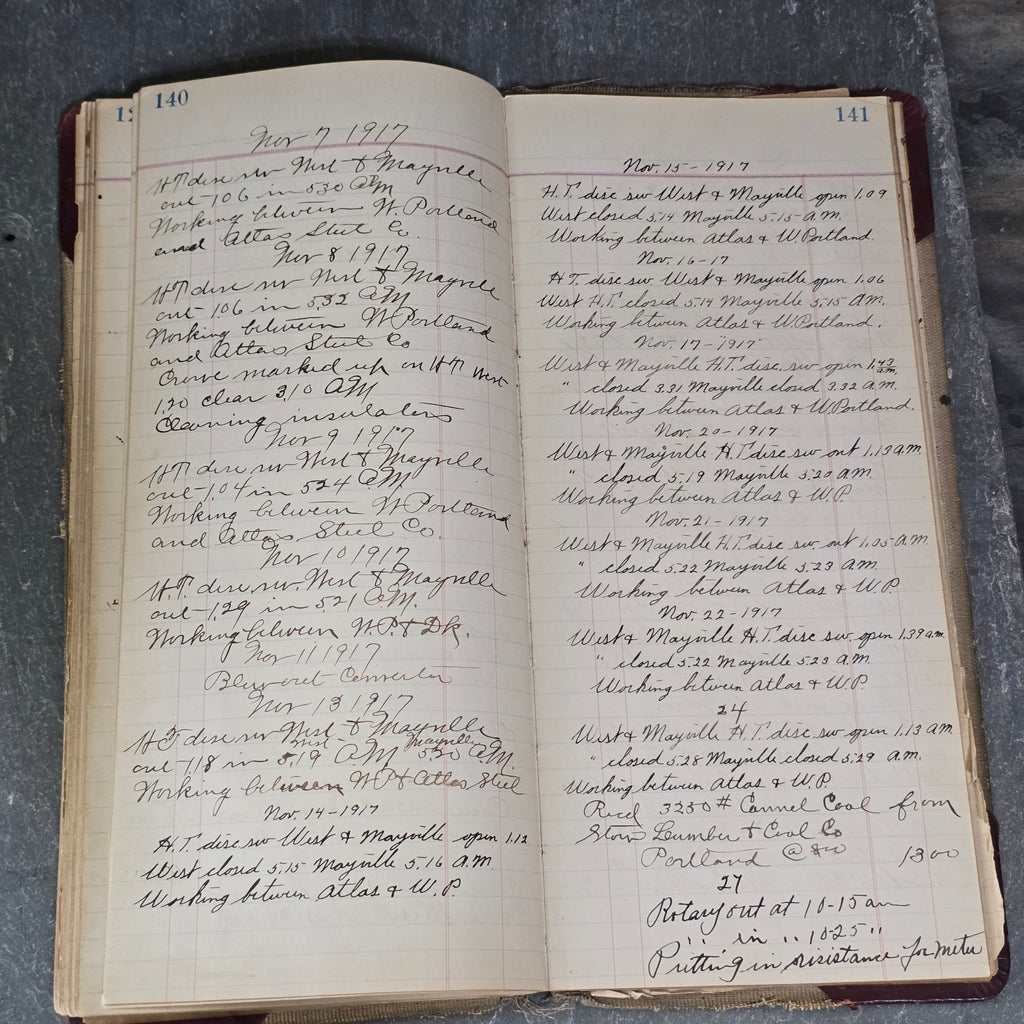 12
140
Nov 7 1917
HT disc sw West & Mayville
out 106 in 530 AM
Working between W. Portland
and Atlas Steel Co.
Nov 8 1917
HT disc sw West & Mayville
out 106 in 532 AM
Working between W Portland
and Atlas Steel Co
Crowe marked up on HT West
1.20 clear 310 AM
Cleaning insulators
Nov 9 1917
HT disc sw West & Mayville
out 1.04 in 524 AM
Working between W Portland
and Atlas Steel Co.
Nov 10 1917
H.T. disc sw. West & Mayville
out 1.29 in 521 AM.
Working between W.P. & Dk.
Nov 11 1917
Blew out Converter
Nov 13 1917
HT disc sw West & Mayville
West Mayville
out 1.18 in 5.19 AM 5.20 AM.
Working between W P & Atlas Steel
Nov. 14-1917
H.T. disc sw West & Mayville open 1.12
West closed 5.15 Mayville 5.16 A.M.
Working between Atlas & W.P.
141
Nov. 15-1917
H.T. disc sw West & Mayville open 1.09
West closed 5.14 Mayville 5.15 A.M.
Working between Atlas & W.Portland.
Nov. 16-17
H.T. disc sw. West & Mayville open 1.06
West H.T. closed 5.14 Mayville 5.15 A.M.
Working between Atlas & W.Portland.
Nov. 17-1917
West & Mayville H.T. disc. sw. open 1.43 a.m.
" closed 3.31 Mayville closed 3.32 A.M.
Working between Atlas & W.Portland.
Nov. 20-1917
West & Mayville H.T. disc sw. out 1.13 a.m.
" closed 5.19 Mayville 5.20 A.M.
Working between Atlas & W.P.
Nov. 21-1917
West & Mayville H.T. disc sw. out 1.05 A.M.
" closed 5.22 Mayville 5.23 a.m.
Working between Atlas & W.P.
Nov. 22-1917
West & Mayville H.T. disc sw. open 1.39 a.m.
" closed 5.22 Mayville 5.23 A.M.
Working between Atlas & W.P.
24
West & Mayville H.T. disc sw. open 1.13 A.M
" closed 5.28 Mayville closed 5.29 A.M.
Working between Atlas & W.P.
Recd 3250 # Cannel Coal from
Lumber & Coal Co
Portland @ 800 1300
27
Rotary out at 10-15 am
" in " 10-25 "
Putting in risistance for meter